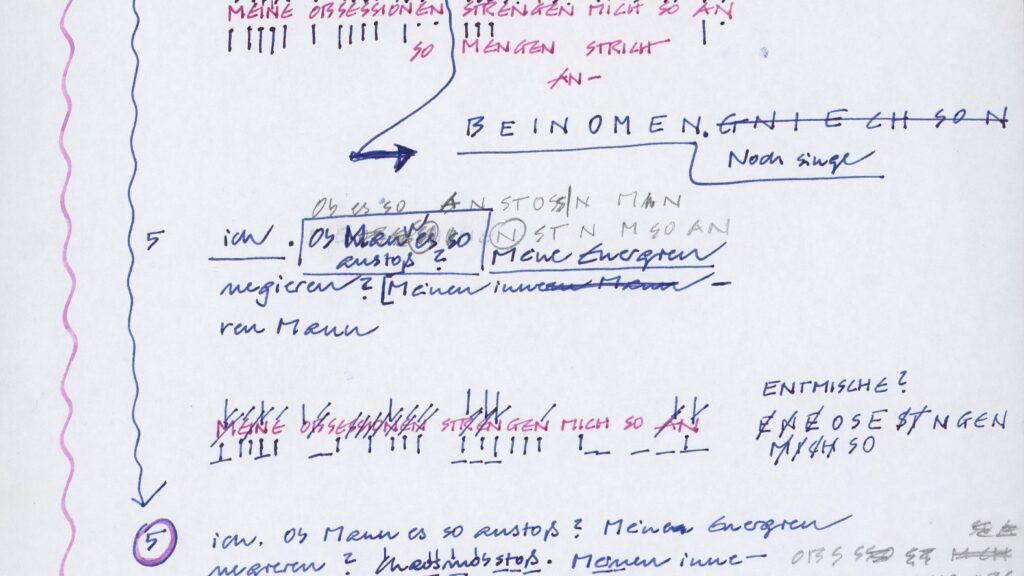 MEINE OBSESSIONEN STRENGEN MICH SO AN
SO MENGEN STRICH
AN-
BEINOMEN. GNIECHSON
Noch singe
Ob es so AN STOSSIN MAN
5 ich. Ob Mann es so N STN MSO AN
anstoß? Meine Energien
negieren? [Meinen inneren Mann -
ren Mann
ENTMISCHE?
MEINE OBSESSIONEN STRENGEN MICH SO AN
OSE STNGEN
MICH SO
5 ich. Ob Mann es so anstoß? Meinen Energien
negieren? Meinen inne-